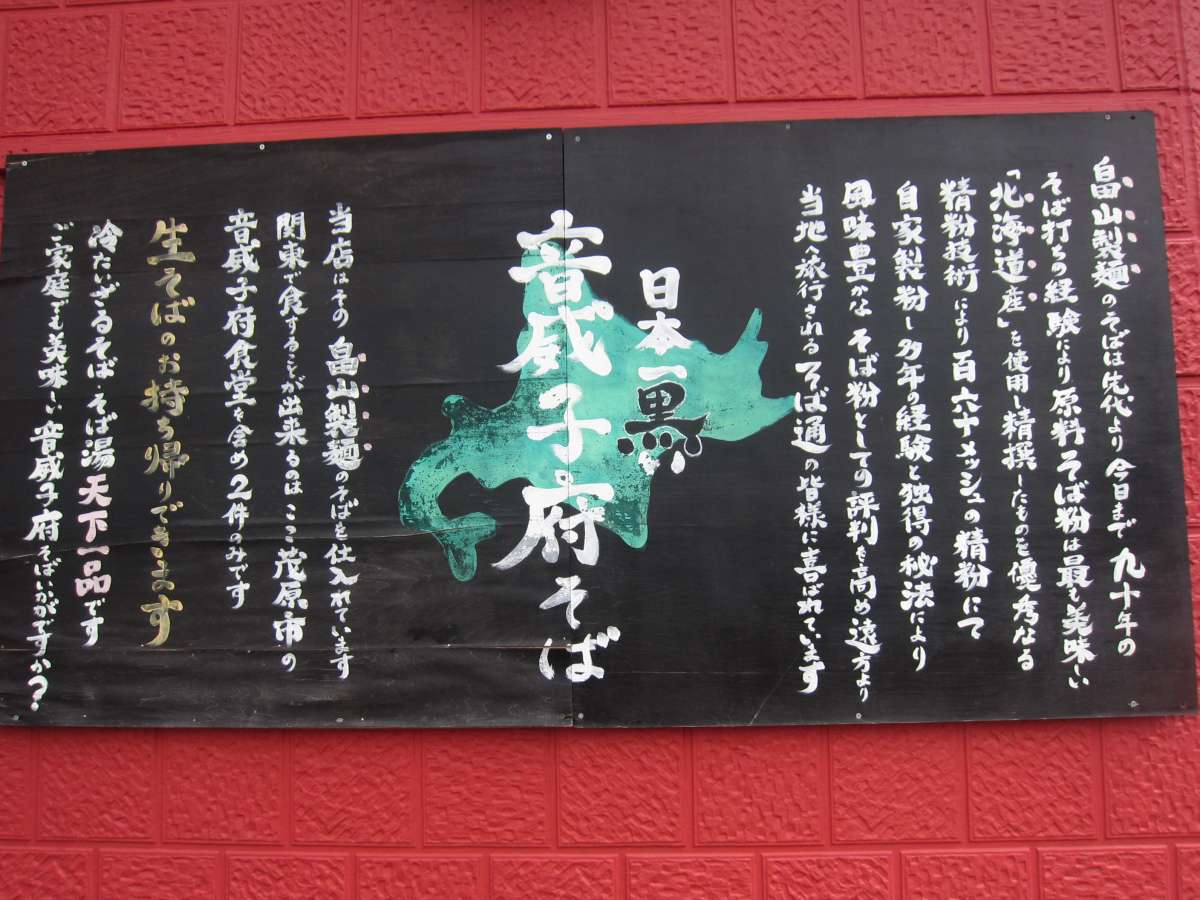 畠山製麺のそばは先代より今日まで九十年の
そば打ちの経験により原料そば粉は最も美味しい
「北海道産」を使用し精撰したものを優秀なる
精粉技術により百六十メッシュの精粉にて
自家製粉し多年の経験と独得の秘法により
風味豊かなそば粉としての評判も高め遠方より
当地へ旅行されるそば通の皆様に喜ばれています
日本一黒い
音威子府そば
当店はその畠山製麺のそばを仕入れています
関東で食することが出来るのはここ茂原市の
音威子府食堂を含め2件のみです
生そばのお持ち帰りできます
冷たいざるそば・そば湯天下一品です
ご家庭でも美味しい音威子府そばいかがですか?